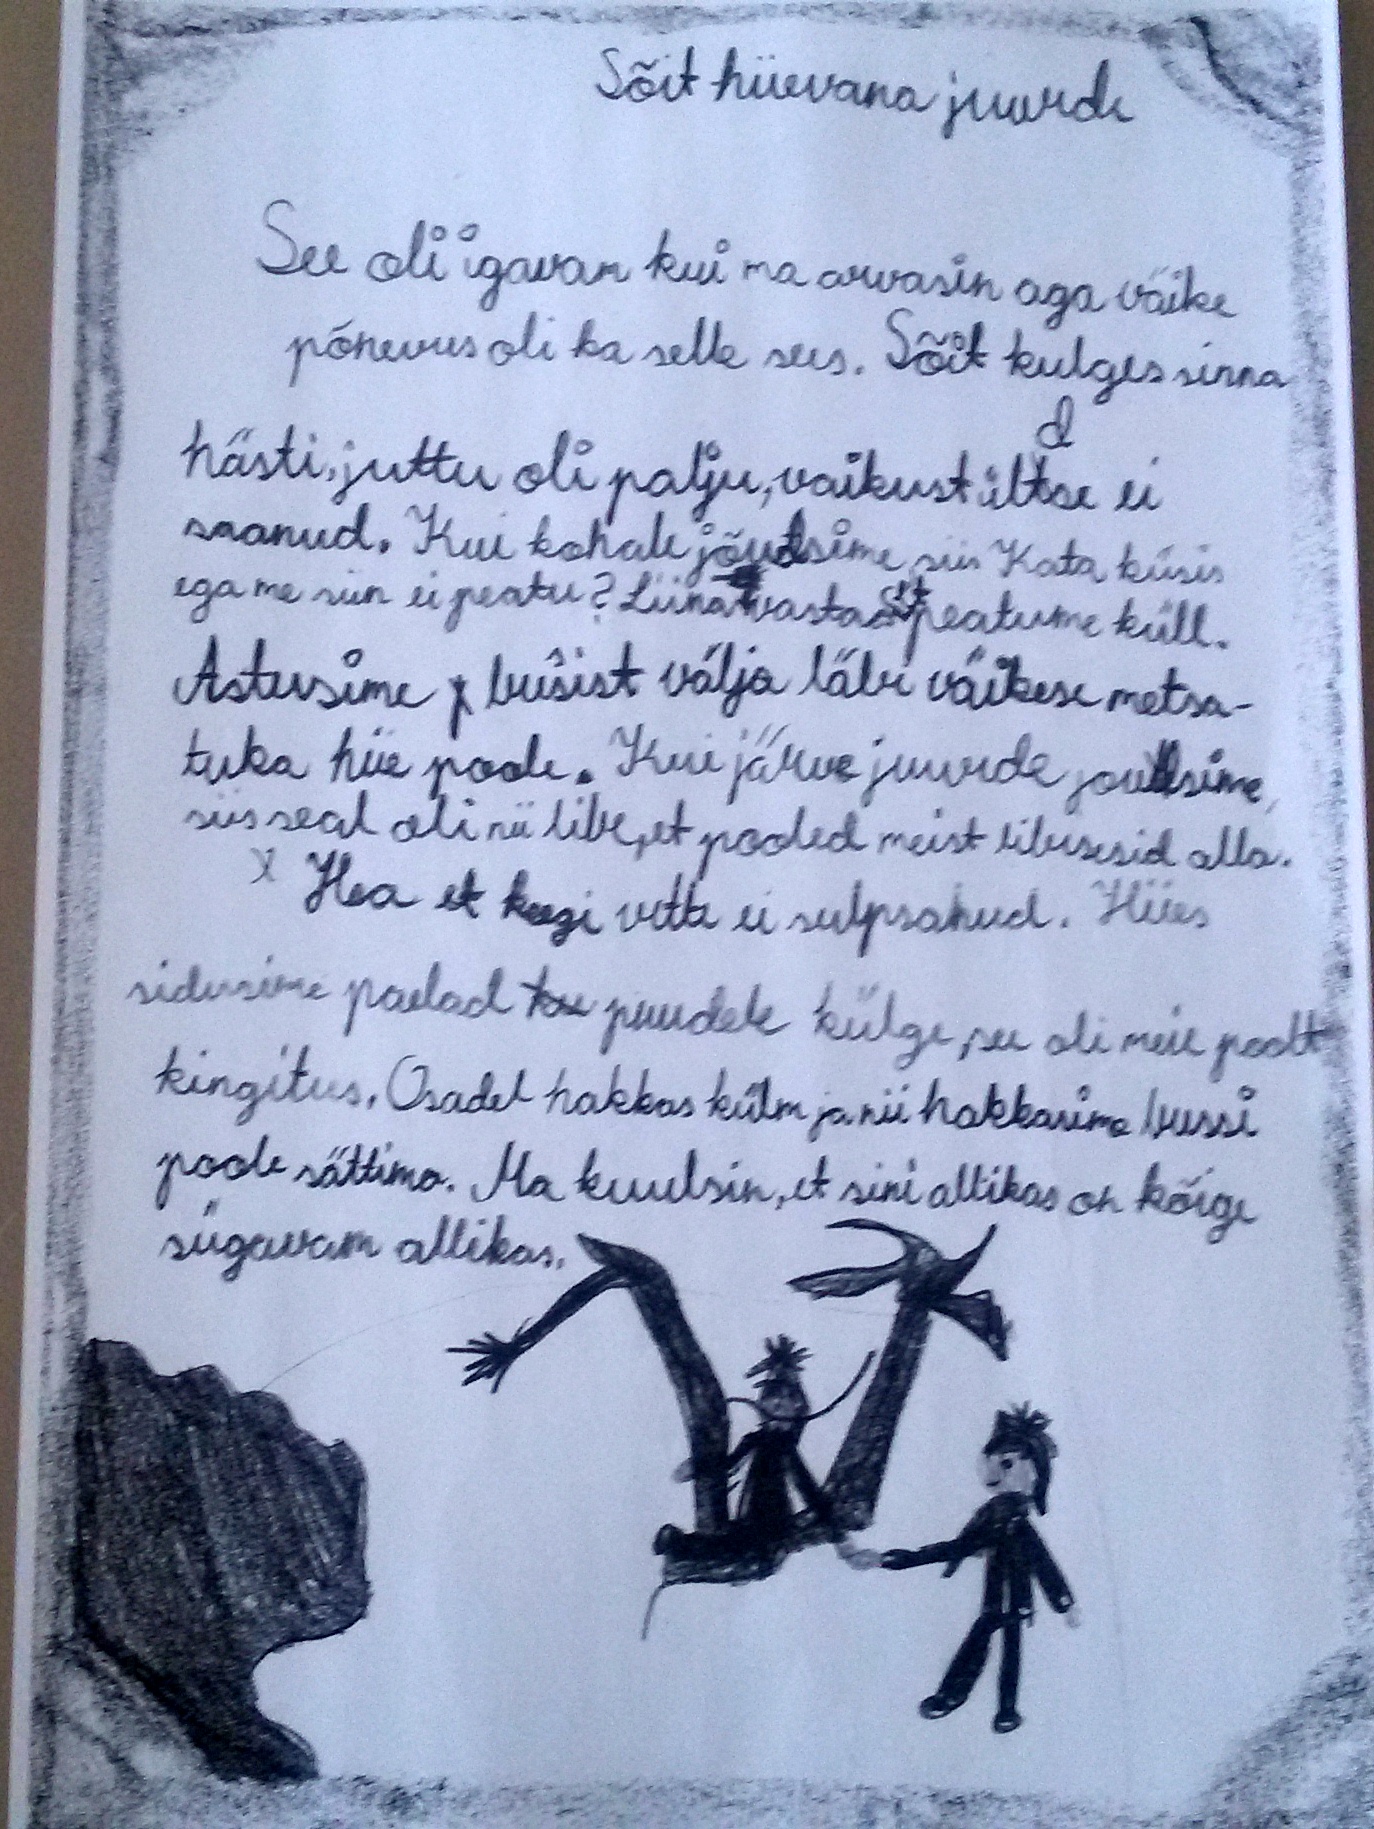 Sõit hiievana juurde
See oli igavam kui ma arvasin aga väike
põnevus oli ka selle sees. Sõit kulges sinna
hästi, juttu oli palju, vaikust üldse ei
saanud. Kui kohale jõudsime siis Kata küsis
ega me siin ei peatu? Liina vastas peatume küll.
Astusime bussist välja läbi väikese metsa-
tuka hiie poole. Kui järve juurde joudsime,
siis seal oli nii libe, et pooled meist libisesid alla.
x Hea et keegi vette ei sulpsanud. Hiies
sidusime paelad puudele külge, see oli meie poolt
kingitus. Osadel hakkas külm ja nii hakkasime bussi
poole sättima. Ma kuulsin, et sini allikas on kõige
sügavam allikas.